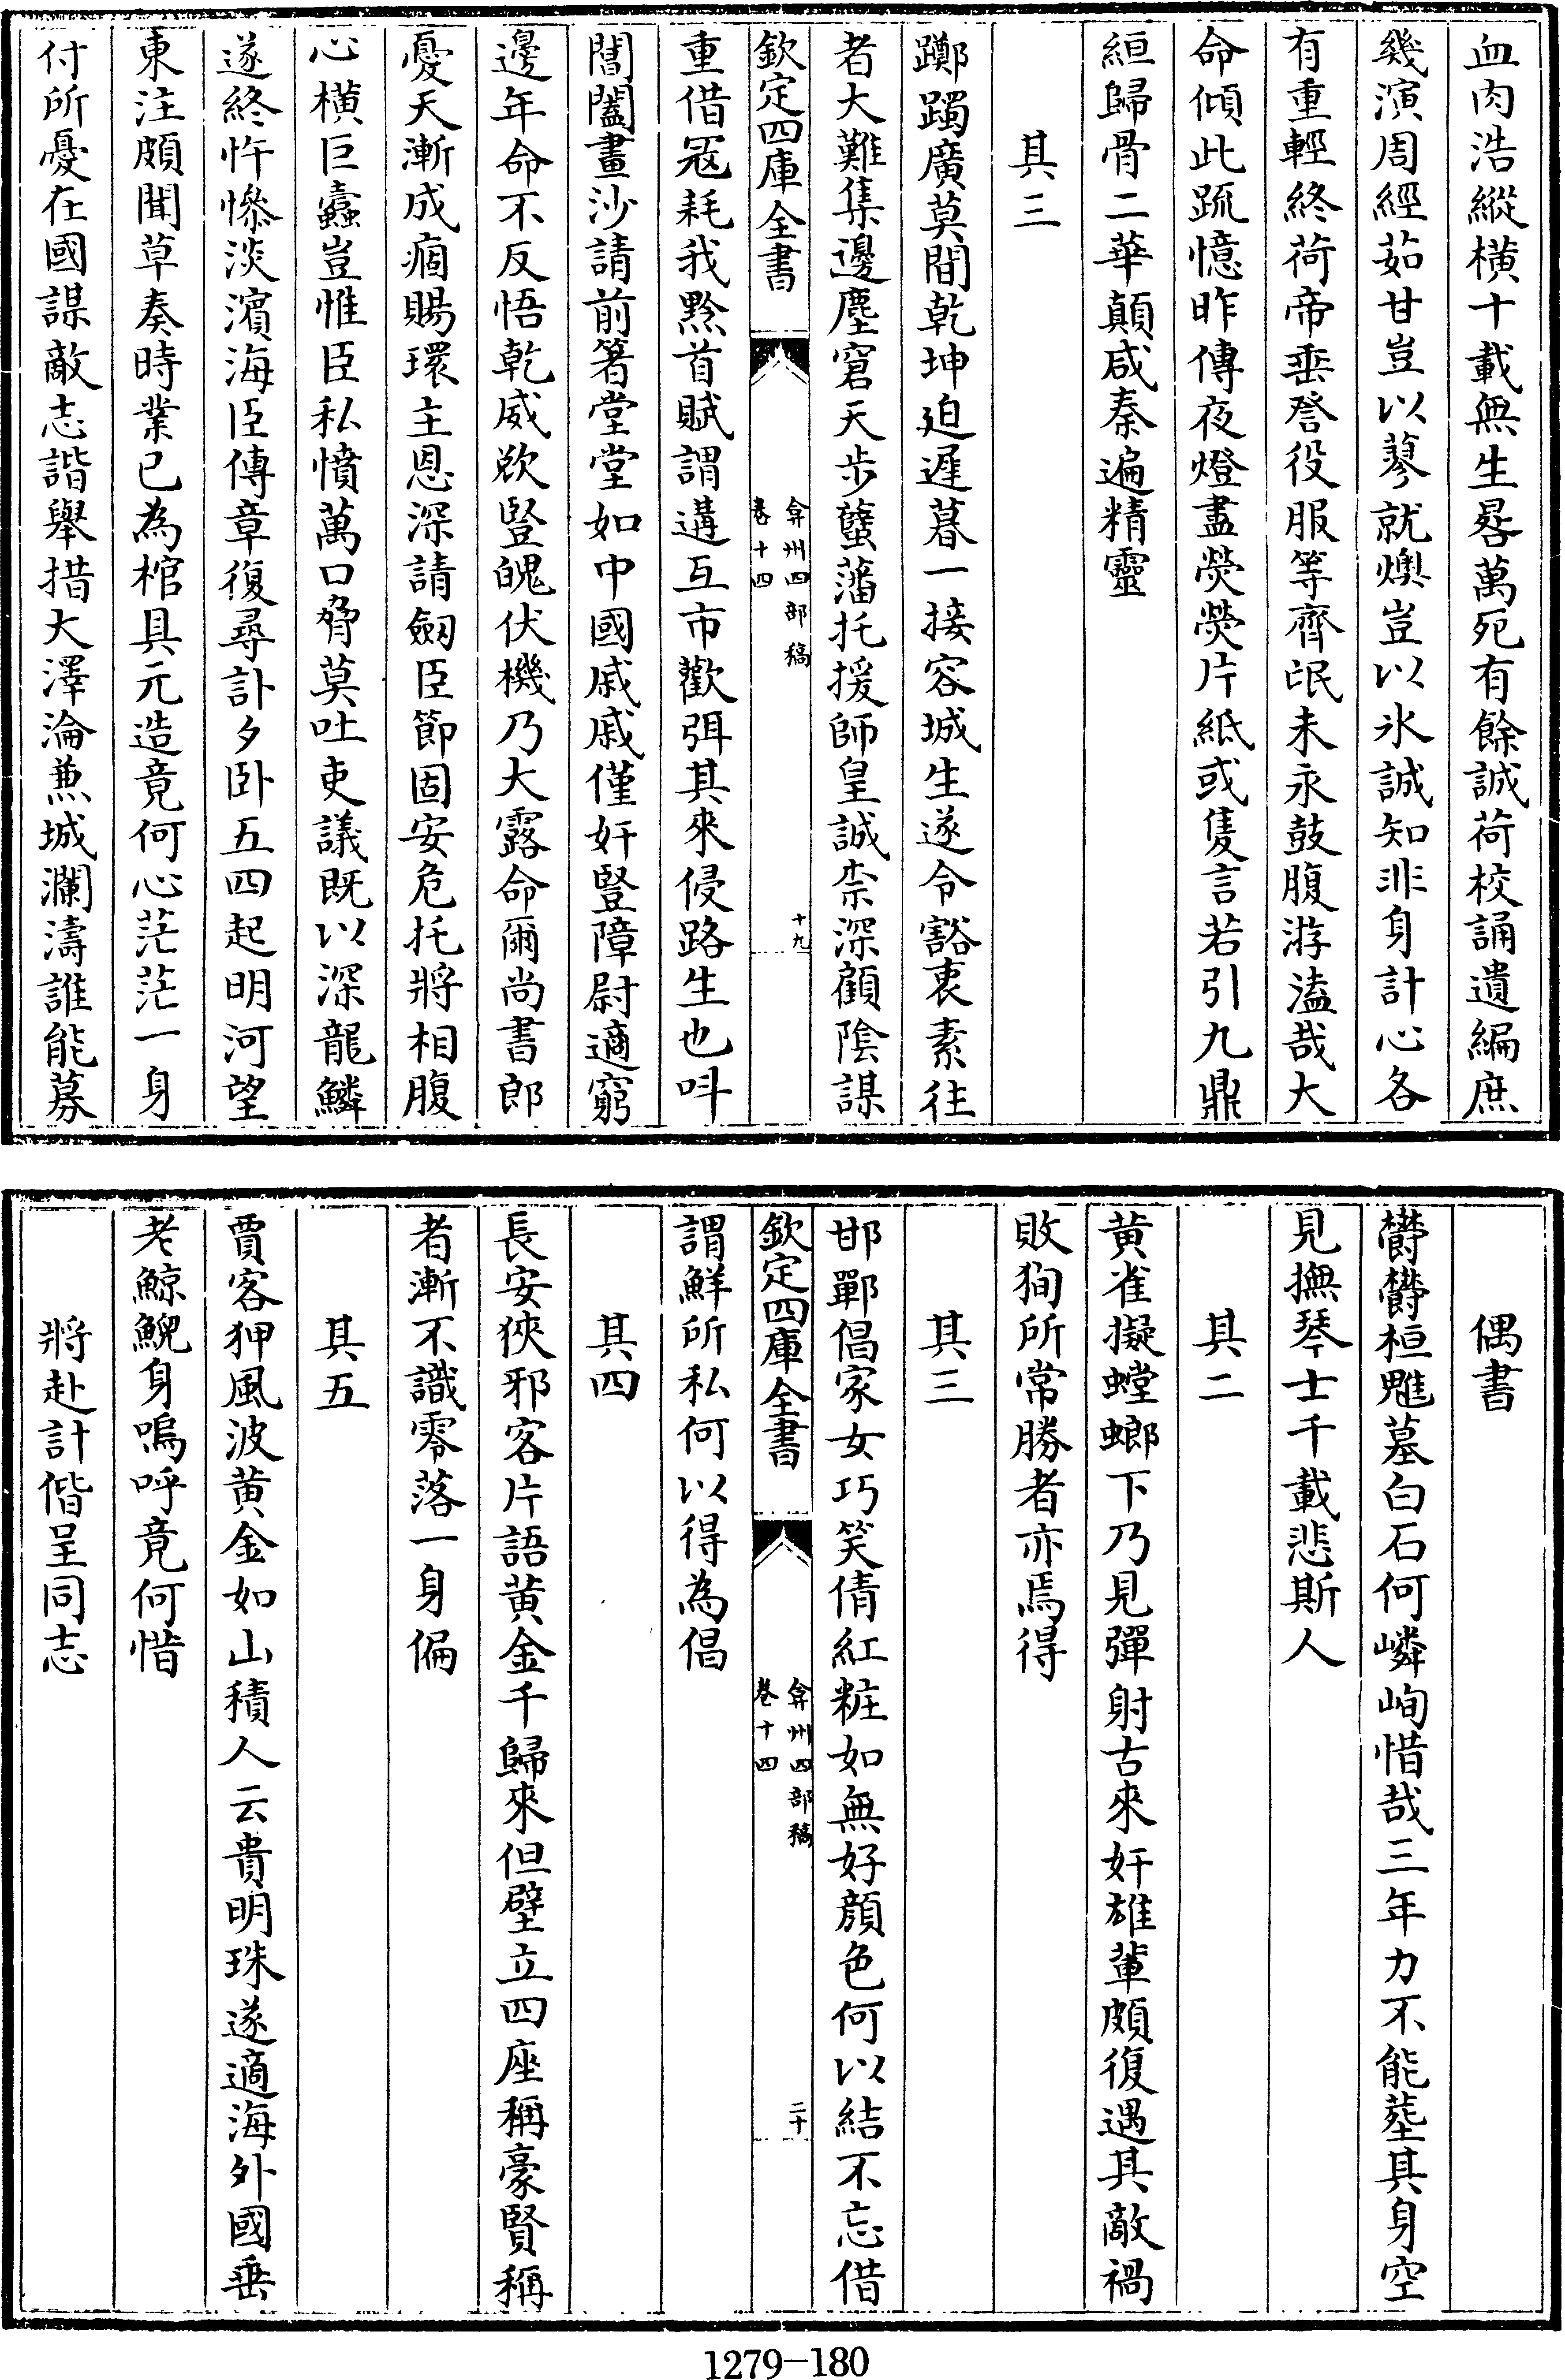 血肉浩縱橫十載無生晷萬死有餘誠荷校誦遺編庶
幾演周經茹甘豈以蓼就燠豈以氷誠知非身計心各
有重輕終荷帝垂詧役服等齊氓未永鼓腹游溘哉大
命傾此䟽憶昨傳夜燈盡熒熒片紙或隻言若引九鼎
絙歸骨二華顛咸秦遍精靈
其三
躑躅廣莫間乾坤迫遲暮一接容城生遂令豁衷素往
者大難集邊塵窘天步蠭藩托援師皇誠柰深顧陰謀
欽定四庫全書
弇州四部稿
卷十四
十九
重借冦耗我黔首賦謂遘互市歡弭其來侵路生也呌
閶闔畫沙請前箸堂堂如中國戚戚僅奸豎障尉適窮
邊年命不反悟乾威欻豎魄伏機乃大露命爾尚書郎
憂天漸成痼賜環主恩深請劔臣節固安危托將相腹
心橫巨蠧豈惟臣私憤萬口脅莫吐吏議既以深龍鱗
遂終忤慘淡濱海臣傳章復尋訃夕卧五四起明河望
東注頗聞草奏時業已為棺具元造竟何心茫茫一身
付所憂在國謀敵志諧舉措大澤淪熊城瀾濤誰能募
偶書
欝欝桓魋墓白石何嶙峋惜哉三年力不能塟其身空
見撫琴士千載悲斯人
其二
黃雀擬螳螂下乃見彈射古來奸雄輩頗復遇其敵禍
敗狥所常勝者亦焉得
其三
邯鄲倡家女巧笑倩紅粧如無好顔色何以結不忘借
欽定四庫全書
弇州四部稿
卷十四
二十
謂鮮所私何以得為倡
其四
長安狹邪客片語黃金千歸來但壁立四座稱豪賢稱
者漸不識零落一身偏
其五
賈客狎風波黃金如山積人云貴明珠遂適海外國垂
老鯨鯢身嗚呼竟何惜
將赴計偕呈同志
1279-180